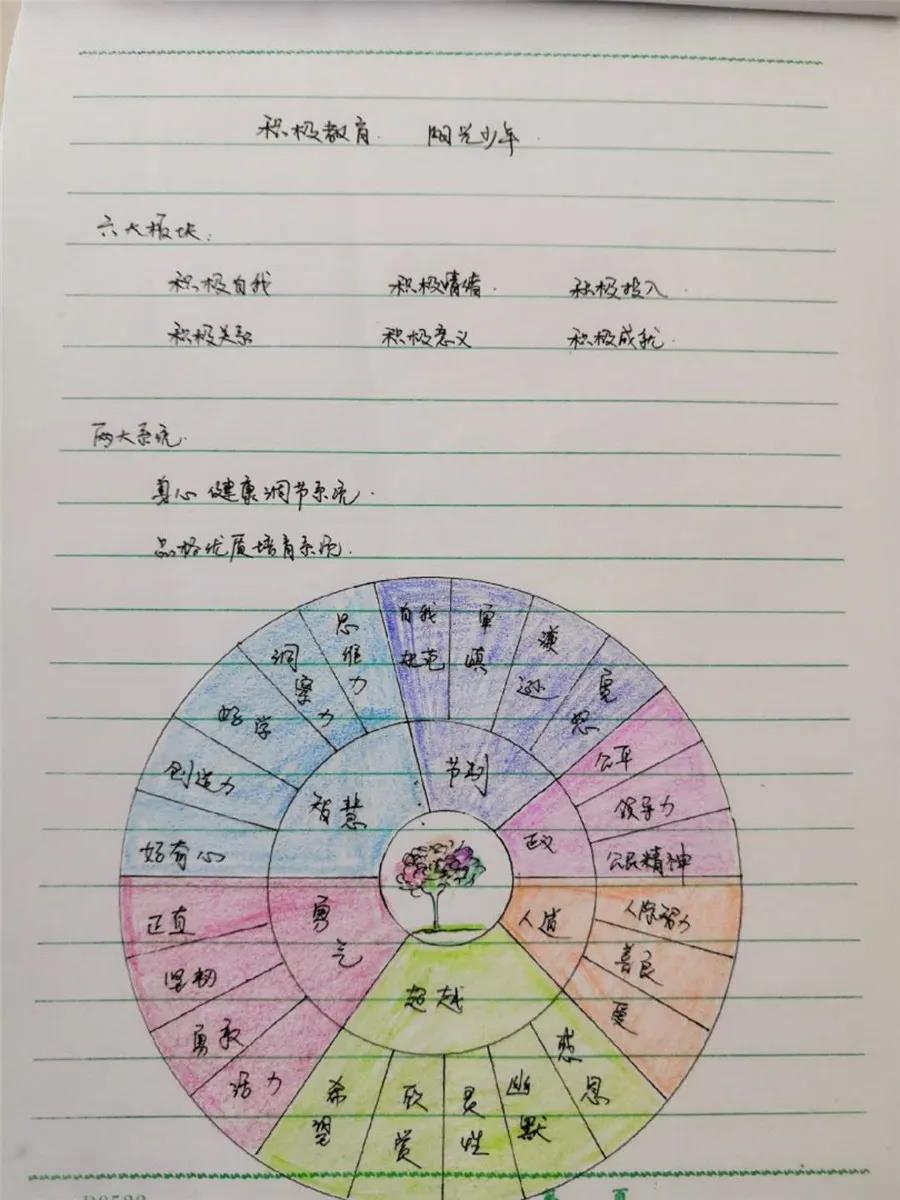 积极教育 阳光少年.
六大板块:
积极自我 积极情绪. 积极投入.
积极关系 积极意义 积极成就.
两大系统.
身心健康调节系统.
品格优质培育系统.
智慧
思维力
洞察力
好学
创造力
好奇心
节制
自我规范
审慎
谦逊
宽恕
正义
公平
领导力
公民精神
人道
人际智力
善良
爱
超越
感恩
幽默
灵性
欣赏
希望
勇气
活力
勇敢
坚韧
正直
第 页